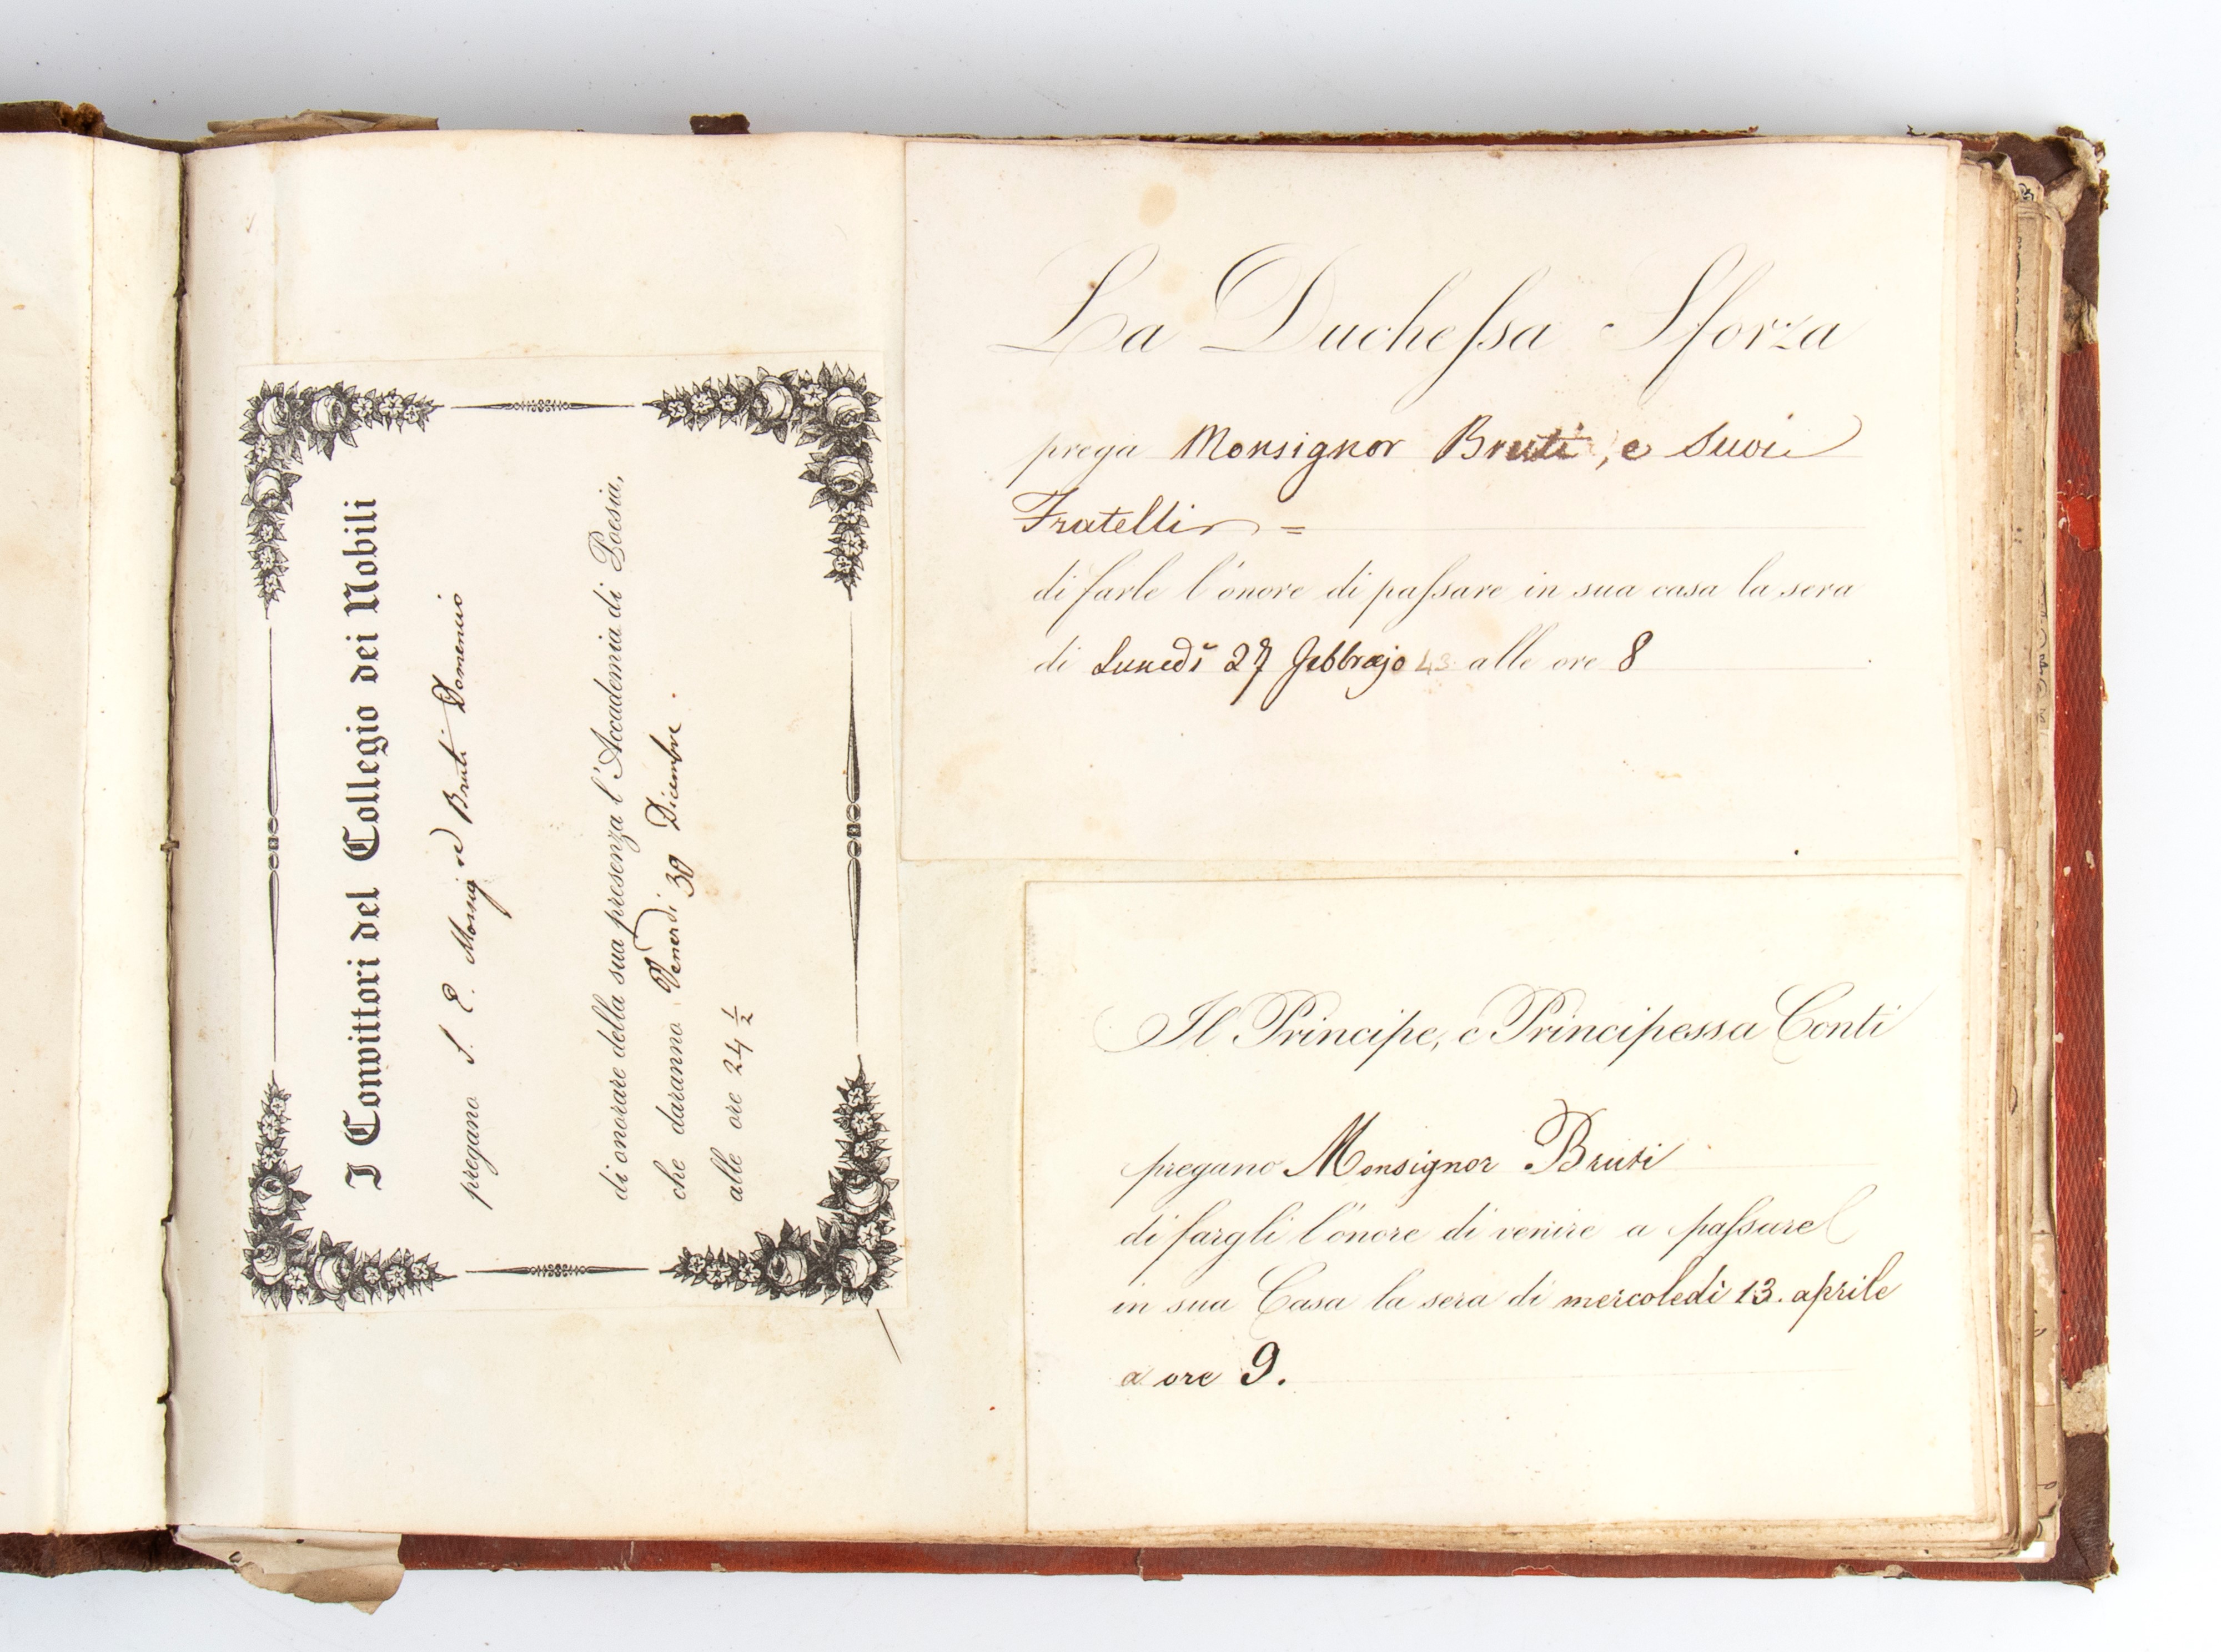 I Convittori del Collegio dei Nobili
pregano S. E. Monsig.re Bruti Domenico
di onorare della sua presenza l'Accademia di Poesia,
che daranno Venerdì 30 Dicembre.
alle ore 24 ½
La Ducheſsa Sforza
prega Monsignor Bruti, e Suoi
Fratelli =
di farle l'onore di paſsare in sua casa la sera
di Lunedì 27 febbrajo 43 alle ore 8
Il Principe, e Principessa Conti
pregano Monsignor Bruti
di fargli l'onore di venire a paſsare
in sua Casa la sera di mercoledì 13. aprile
a ore 9.